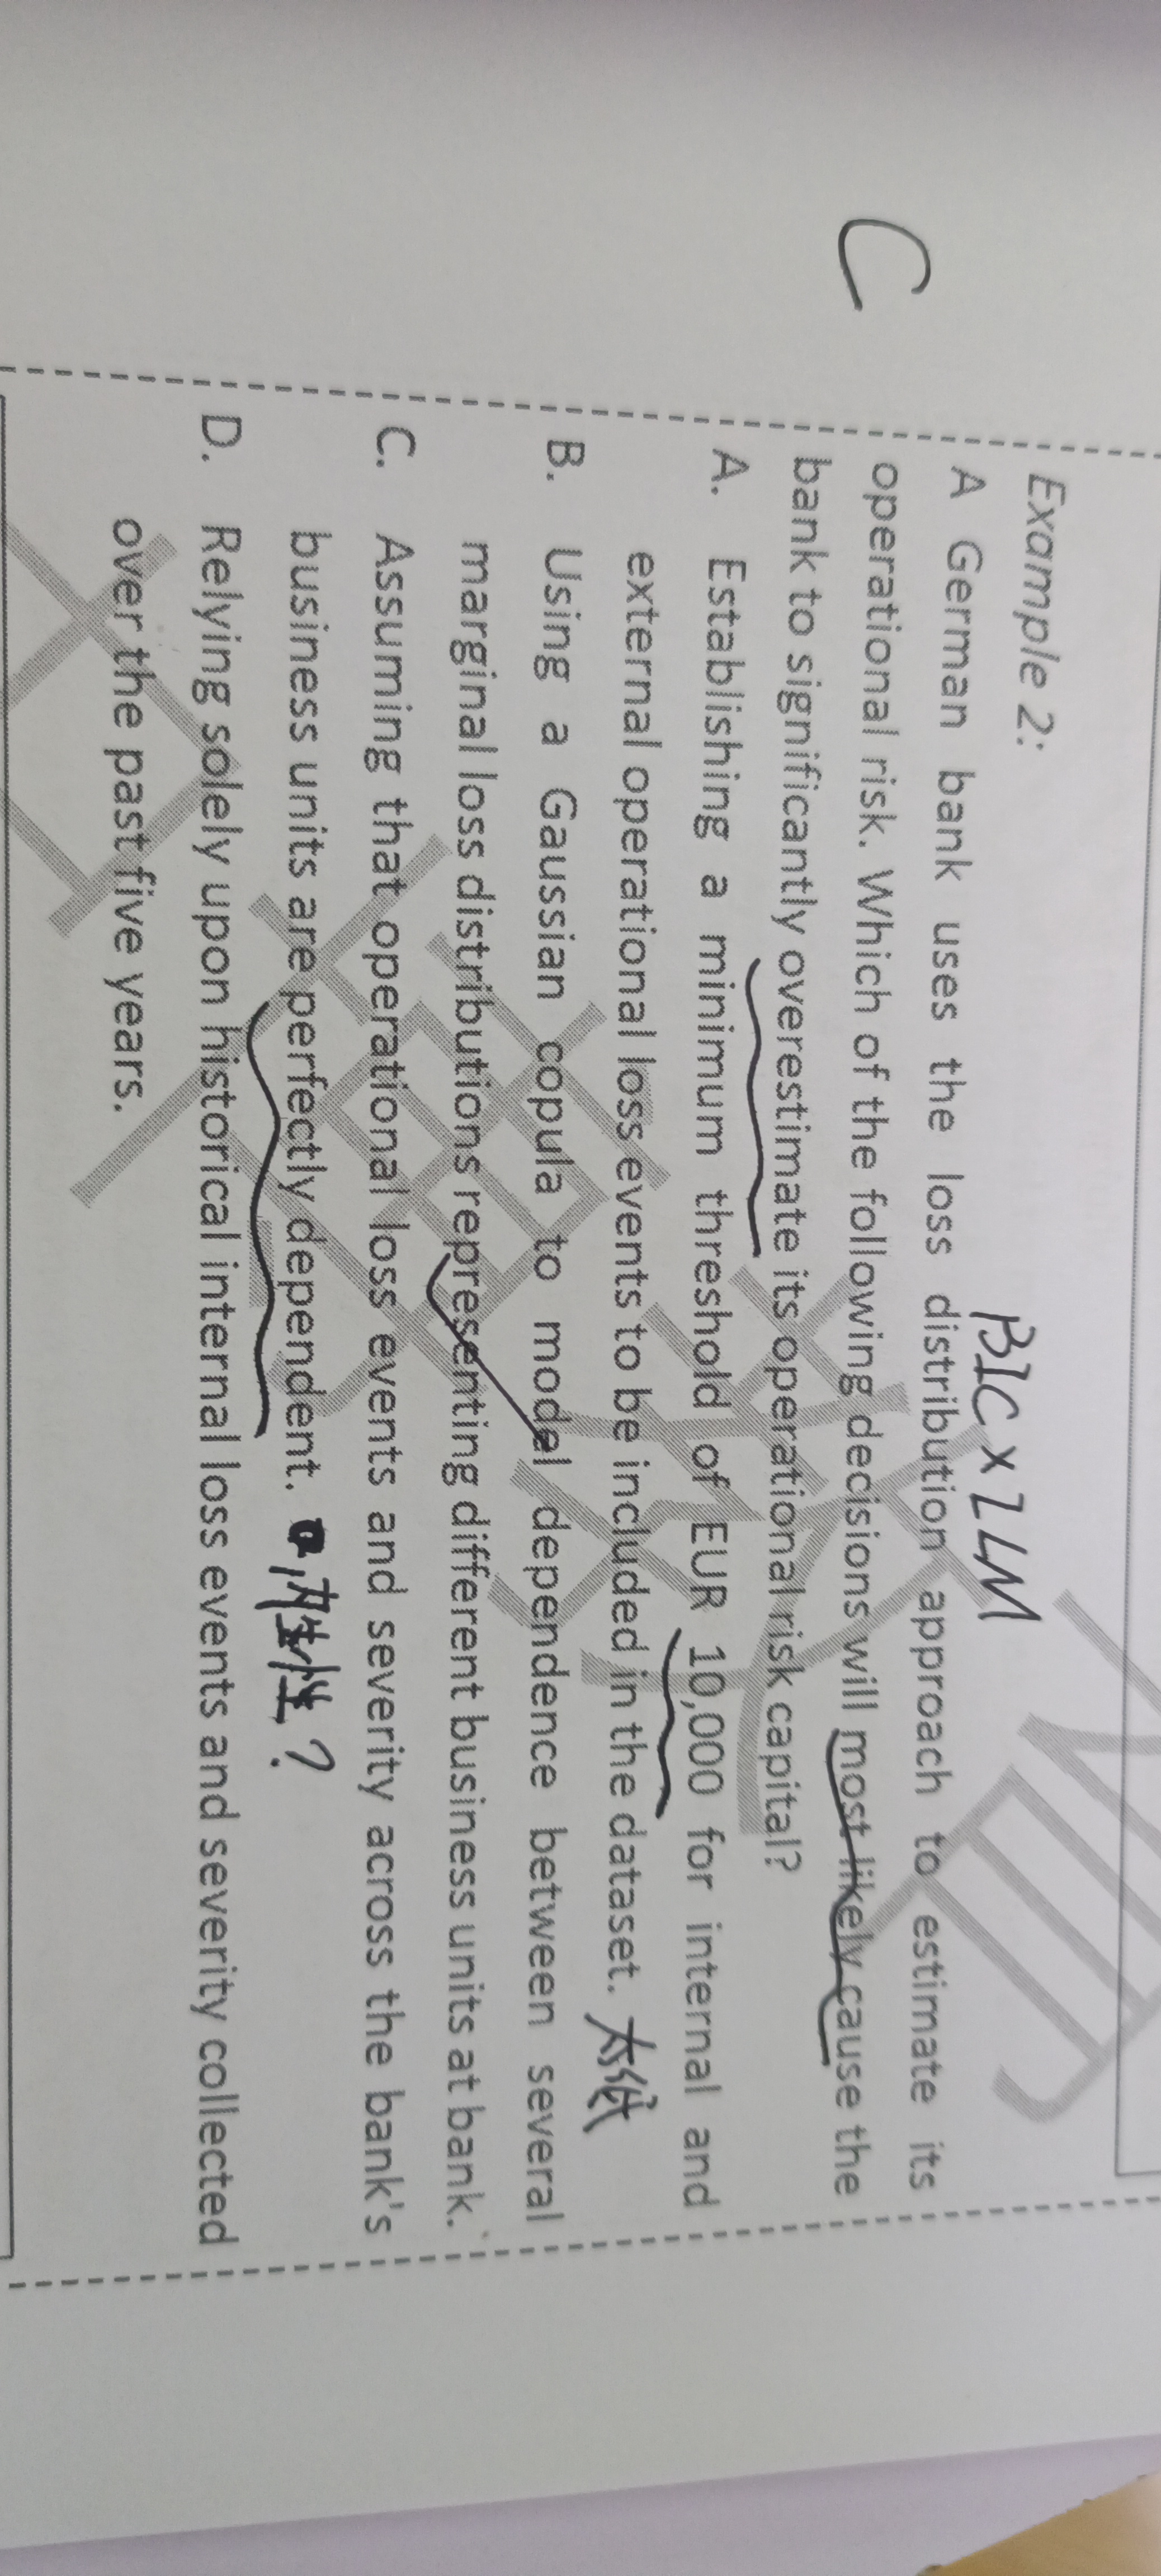 BIC x LM
Example 2:
A German bank uses the loss distribution approach to estimate its
operational risk. Which of the following decisions will most likely cause the
bank to significantly overestimate its operational risk capital?
C
A. Establishing a minimum threshold of EUR 10,000 for internal and
external operational loss events to be included in the dataset. 太低
B. Using a Gaussian copula to model dependence between several
marginal loss distributions representing different business units at bank.
C. Assuming that operational loss events and severity across the bank's
business units are perfectly dependent. 相关性?
D. Relying solely upon historical internal loss events and severity collected
over the past five years.